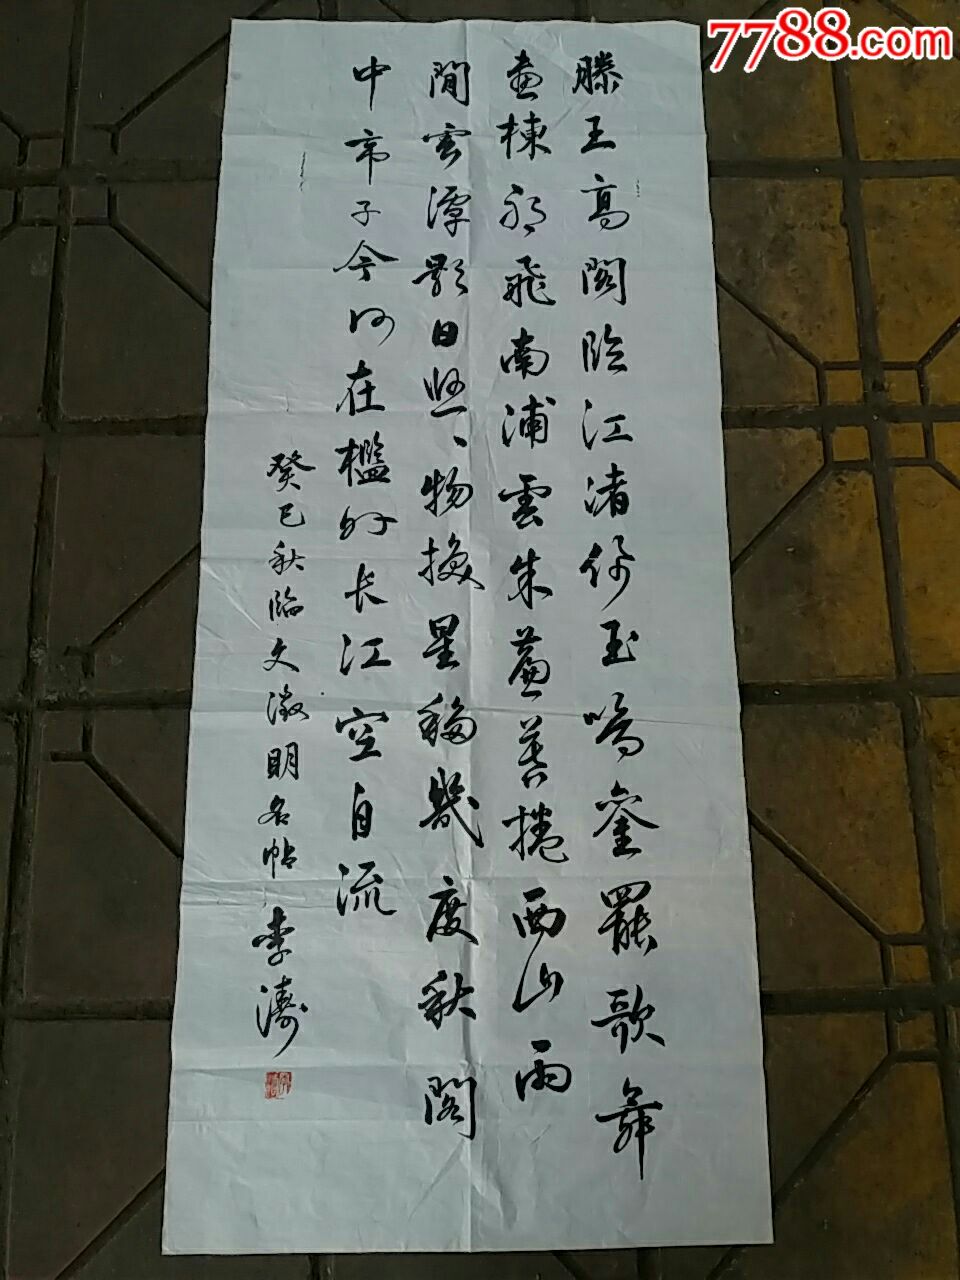 7788.com
滕王高阁临江渚佩玉鸣銮罢歌舞
画栋朝飞南浦雲朱簾暮捲西山雨
閒雲潭影日悠、物换星移幾度秋阁
中帝子今何在槛外长江空自流
癸巳秋临文澂明名帖 李濤